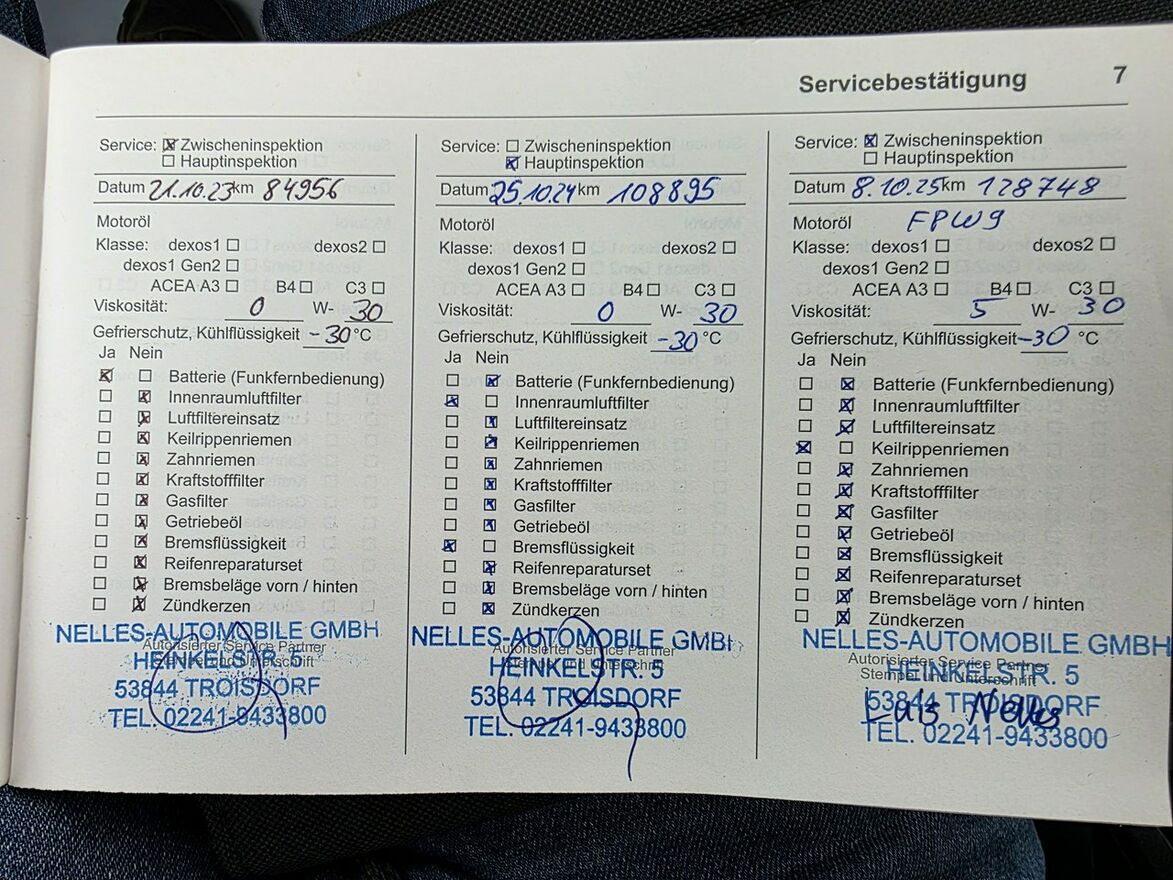 Servicebestätigung 7
Service: ☒ Zwischeninspektion
☐ Hauptinspektion
Datum 21.10.23 km 84956
Motoröl
Klasse: dexos1 ☐ dexos2 ☐
dexos1 Gen2 ☐
ACEA A3 ☐ B4 ☐ C3 ☐
Viskosität: 0 W- 30
Gefrierschutz, Kühlflüssigkeit -30 °C
Ja Nein
☒ ☐ Batterie (Funkfernbedienung)
☐ ☒ Innenraumluftfilter
☐ ☒ Luftfiltereinsatz
☐ ☒ Keilrippenriemen
☐ ☒ Zahnriemen
☐ ☒ Kraftstofffilter
☐ ☒ Gasfilter
☐ ☒ Getriebeöl
☐ ☒ Bremsflüssigkeit
☐ ☒ Reifenreparaturset
☐ ☒ Bremsbeläge vorn / hinten
☐ ☒ Zündkerzen
NELLES-AUTOMOBILE GMBH
Autorisierter Service Partner
HEINKELSTR. 5
Stempel und Unterschrift
53844 TROISDORF
TEL. 02241-9433800
Service: ☐ Zwischeninspektion
☒ Hauptinspektion
Datum 25.10.24 km 108895
Motoröl
Klasse: dexos1 ☐ dexos2 ☐
dexos1 Gen2 ☐
ACEA A3 ☐ B4 ☐ C3 ☐
Viskosität: 0 W- 30
Gefrierschutz, Kühlflüssigkeit -30 °C
Ja Nein
☐ ☒ Batterie (Funkfernbedienung)
☒ ☐ Innenraumluftfilter
☐ ☒ Luftfiltereinsatz
☐ ☒ Keilrippenriemen
☐ ☒ Zahnriemen
☐ ☒ Kraftstofffilter
☐ ☒ Gasfilter
☐ ☒ Getriebeöl
☒ ☐ Bremsflüssigkeit
☐ ☒ Reifenreparaturset
☐ ☒ Bremsbeläge vorn / hinten
☐ ☒ Zündkerzen
NELLES-AUTOMOBILE GMBH
Autorisierter Service Partner
HEINKELSTR. 5
Stempel und Unterschrift
53844 TROISDORF
TEL. 02241-9433800
Service: ☒ Zwischeninspektion
☐ Hauptinspektion
Datum 8.10.25 km 128748
Motoröl FPW9
Klasse: dexos1 ☐ dexos2 ☐
dexos1 Gen2 ☐
ACEA A3 ☐ B4 ☐ C3 ☐
Viskosität: 5 W- 30
Gefrierschutz, Kühlflüssigkeit -30 °C
Ja Nein
☐ ☒ Batterie (Funkfernbedienung)
☐ ☒ Innenraumluftfilter
☐ ☒ Luftfiltereinsatz
☒ ☐ Keilrippenriemen
☐ ☒ Zahnriemen
☐ ☒ Kraftstofffilter
☐ ☒ Gasfilter
☐ ☒ Getriebeöl
☐ ☒ Bremsflüssigkeit
☐ ☒ Reifenreparaturset
☐ ☒ Bremsbeläge vorn / hinten
☐ ☒ Zündkerzen
NELLES-AUTOMOBILE GMBH
Autorisierter Service Partner
HEINKELSTR. 5
Stempel und Unterschrift
53844 TROISDORF
Luis
TEL. 02241-9433800